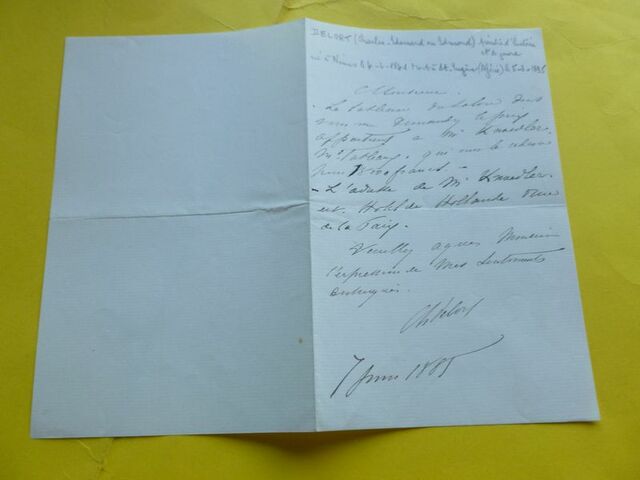 DELORT (Charles-Edouard ou Edmond) peintre d'histoire
et de genre
né à Nîmes le 4-2-1841 Mort à St. Eugène (Algérie) le 5 1895
Monsieur
Le tableau du Salon dont
vous me demandez le prix
appartient à Mr Knoedler
Md Tableaux, qui vous le
pour francs
L'adresse de Mr Knoedler
est Hotel de Hollande rue
de la Paix
Veuillez agréer Monsieur
l'expression de mes sentiments
distingués.
Ch Delort
7 juin 1885